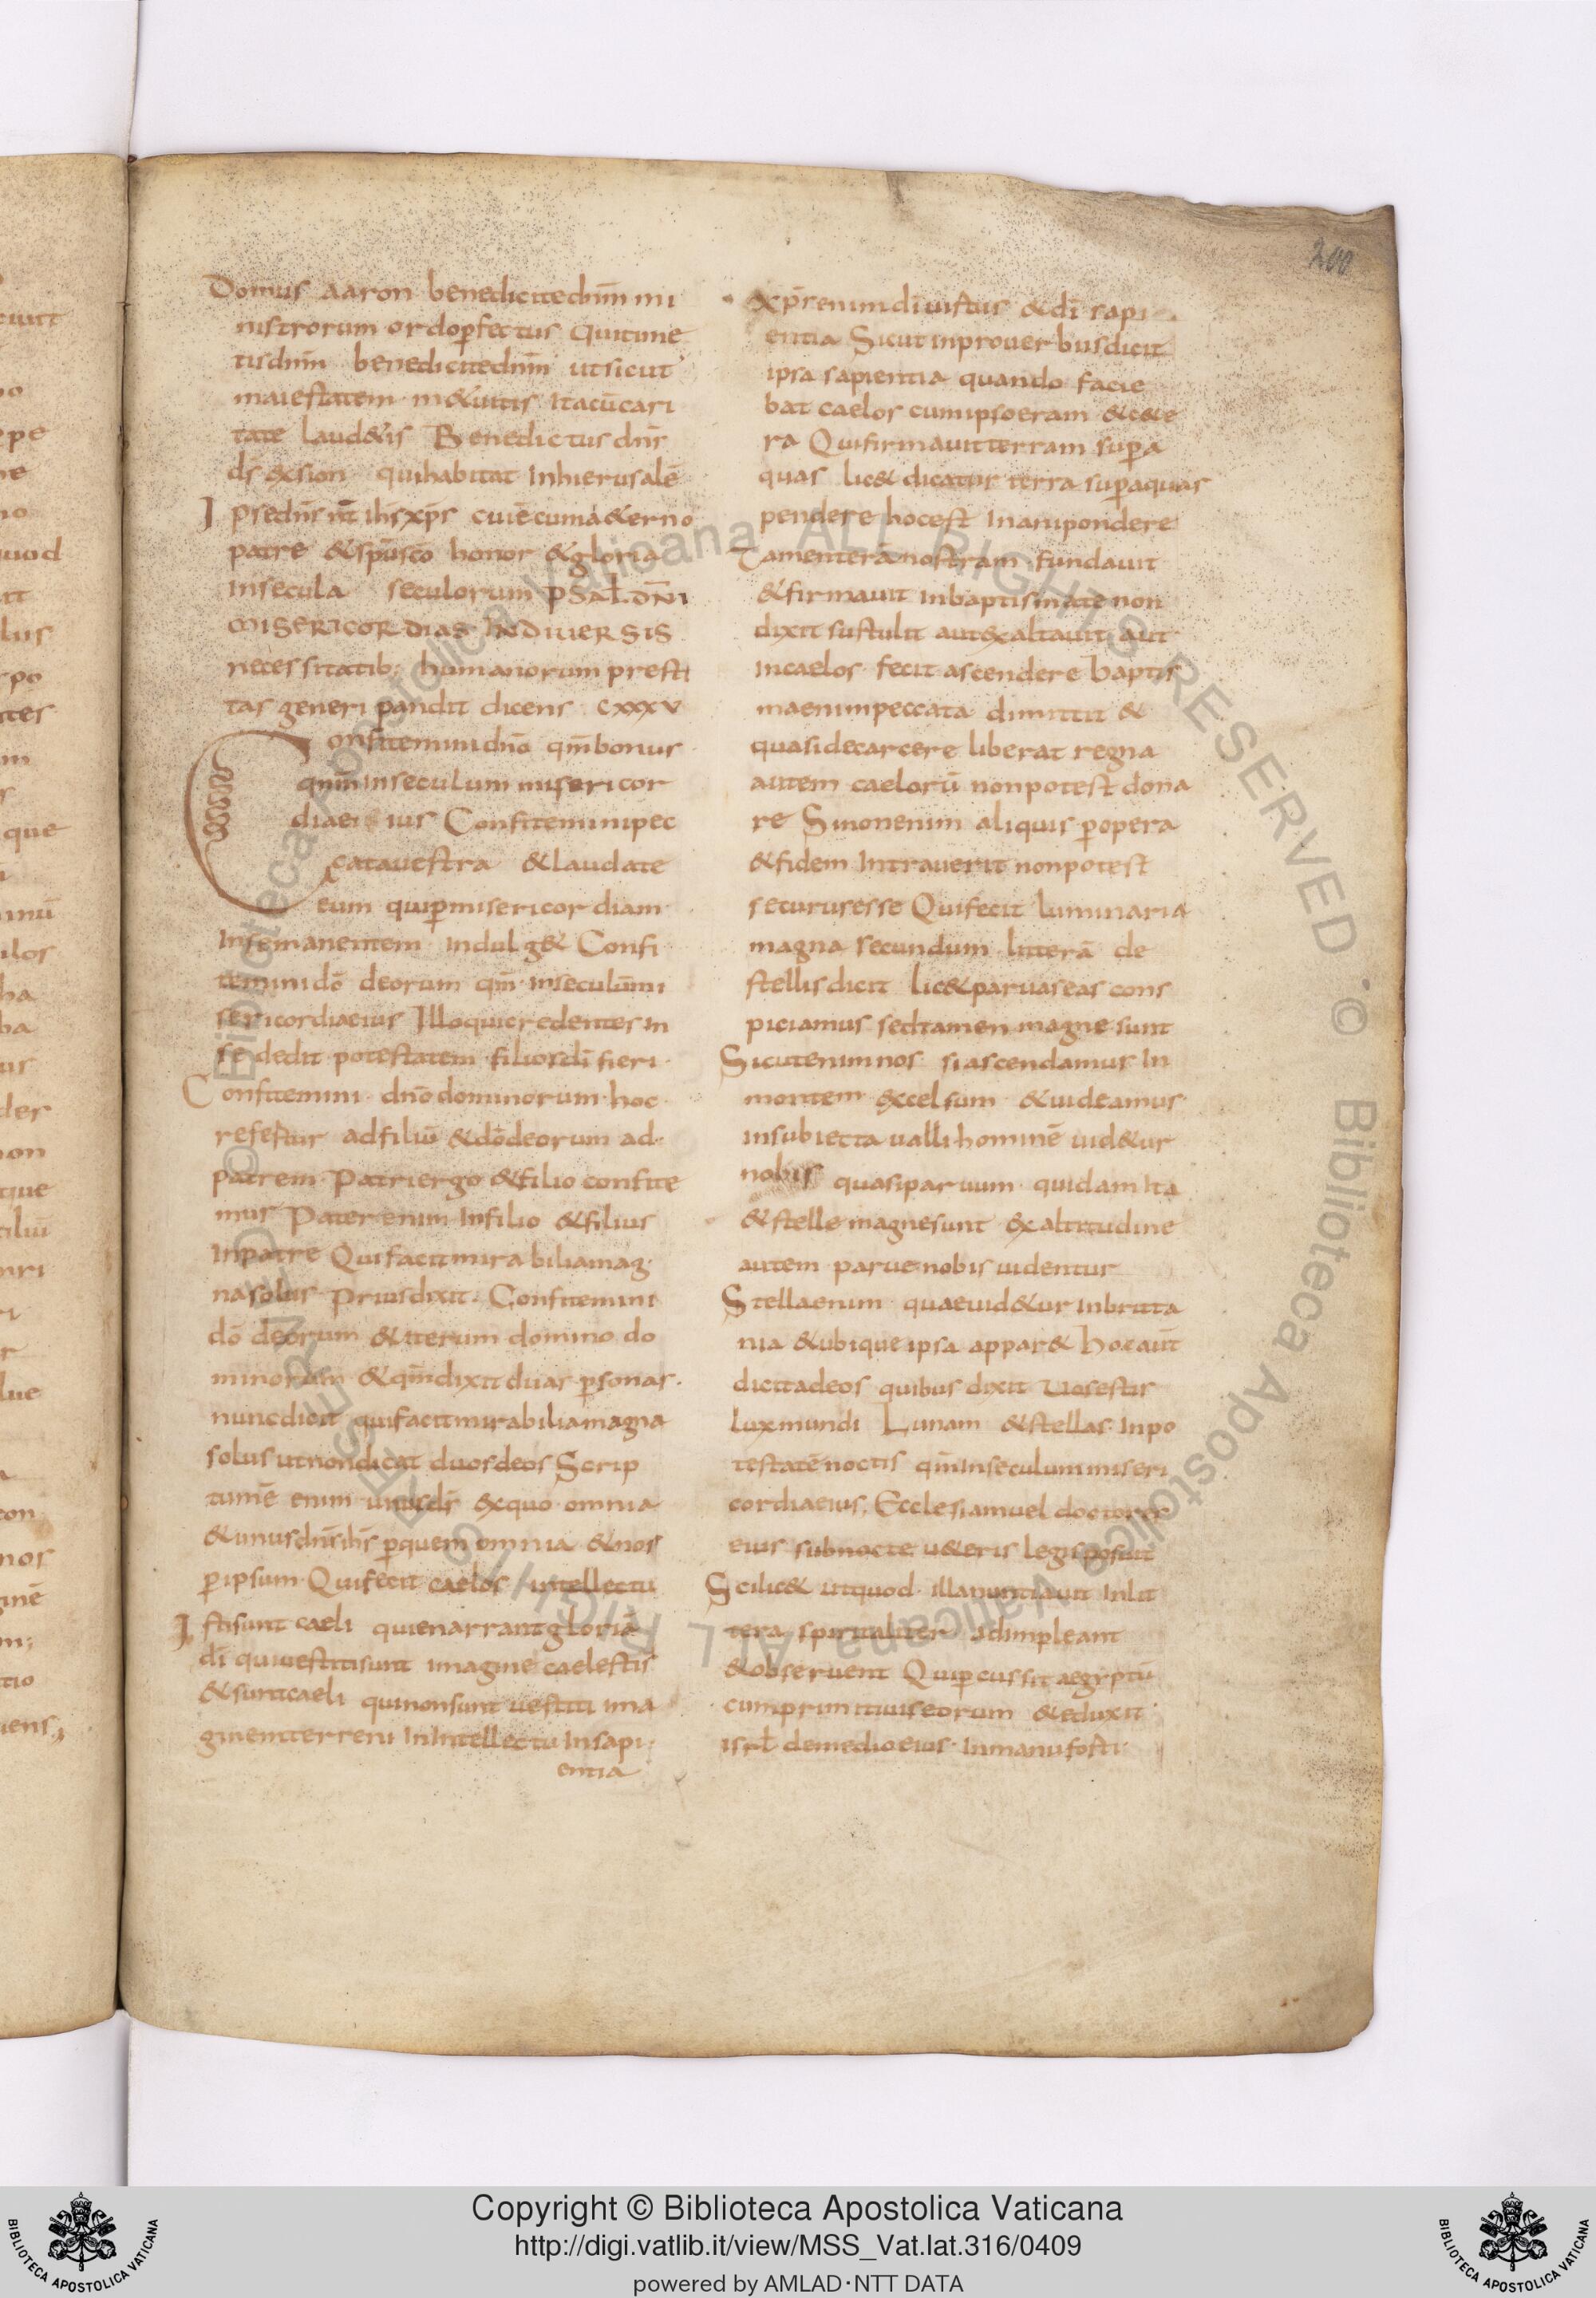 200
Domus aaron benedicite dnm mi
nistrorum ordo pfectus Qui time
tis dnm benedicite dnm ut sicut
maiestatem m&uitis Ita cū cari
tate laud&is Benedictus dns
ds ex sion qui habitat Inhierusalē
Ipse dns nr ihs xps cui ē cum a&erno
patre & spu sco honor & gloria
In secula seculorum PSAL DNI
MISERICORDIAS IN DIUERSIS
necessitatib; humanorum presti
tas generi pandit dicens cxxxv
Confitemini dno qm bonus
qm In seculum misericor
dia eius Confitemini pec
cata uestra & laudate
eum qui p misericordiam
In se manentem Indulg& Confi
temini do deorum qm In seculum mi
sericordia eius Illo qui credentes In
se dedit potestatem filios di fieri
Confitemini dno dominorum hoc
refertur ad filiū & do deorum ad
patrem Patri ergo & filio confite
mus Pater enim In filio & filius
In patre Qui facit mirabilia mag
na solus Prius dixit Confitemini
do deorum & iterum domino do
minorum & qm dixit duas psonas
nunc dicit qui facit mirabilia magna
solus ut non dicat duos deos Scrip
tum ē enim unus ds ex quo omnia
& unus dns ihs p quem omnia & nos
p ipsum Qui fecit caelos intellectu
Isti sunt caeli qui enarrant gloriā
di qui uestiti sunt imagine caelestis
& sunt caeli qui non sunt uestiti ima
ginem terreni In Intellectu In sapi
entia
xps enim di uirtus & di sapi
entia Sicut in prouerbus dicit
ipsa sapientia quando facie
bat caelos cum ipso eram & c&e
ra Qui firmauit terram supa
quas lic& dicatur terra sup aquas
pendere hoc est In aru pondere
Tamen terā nostram fundauit
& firmauit in baptismate non
dixit sustulit aut exaltauit aut
In caelos fecit ascendere baptis
ma enim peccata dimittit &
quasi de carcere liberat regna
autem caelorū non potest dona
re Si non enim aliquis p opera
& fidem Intrauerit non potest
securus esse Qui fecit luminaria
magna secundum litterā de
stellis dicit lic& paruas eas cons
piciamus sed tamen magne sunt
Sicut enim nos si ascendamus In
montem excelsum & uideamus
in subiecta ualli hominē uid&ur
nobis quasi paruum quidam Ita
& stelle magne sunt ex altitudine
autem parue nobis uidentur
Stella enim quae uid&ur in britta
nia & ubique ipsa appar& Hoc aūt
dicit ad eos quibus dixit Uos estis
lux mundi Lunam & stellas In po
testatē noctis qm In seculum miseri
cordia eius Ecclesiam uel doctores
eius sub nocte u&eris legis posuit
Scilic& ut quod illa nuntiauit In lit
tera spiritaliter adimpleant
& obseruent Qui pcussit aegyptū
cum primitiuis eorum & eduxit
isrl de medio eius In manu forti
Copyright © Biblioteca Apostolica Vaticana
http://digi.vatlib.it/view/MSS_Vat.lat.316/0409
powered by AMLAD·NTT DATA
BIBLIOTECA APOSTOLICA VATICANA
BIBLIOTECA APOSTOLICA VATICANA